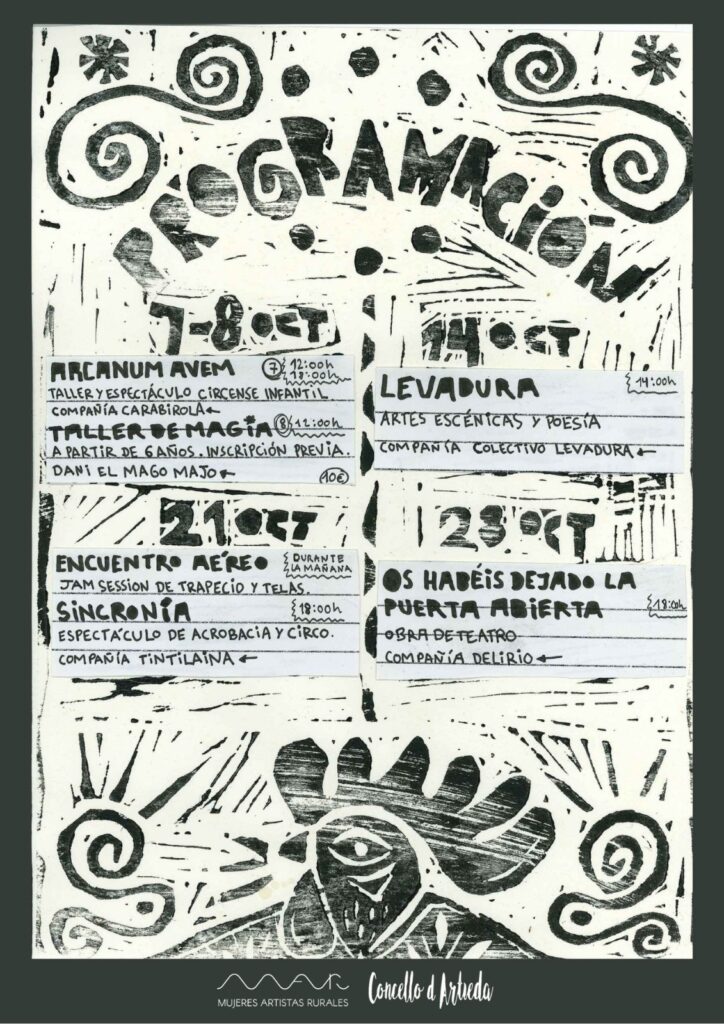 PROGRAMACIÓN
7-8 OCT
ARCANUM AVEM 7 12:00h
18:00h
TALLER Y ESPECTÁCULO CIRCENSE INFANTIL
COMPAÑÍA CARABIROLA←
TALLER DE MAGIA 8 12:00h
A PARTIR DE 6 AÑOS. INSCRIPCIÓN PREVIA.
DANI EL MAGO MAJO← 10€
14 OCT
LEVADURA 19:00h
ARTES ESCÉNICAS Y POESÍA
COMPAÑÍA COLECTIVO LEVADURA←
21 OCT
ENCUENTRO AÉREO DURANTE
LA MAÑANA
JAM SESSION DE TRAPECIO Y TELAS.
SINCRONÍA 18:00h
ESPECTÁCULO DE ACROBACIA Y CIRCO.
COMPAÑÍA TINTILAINA ←
28 OCT
OS HABÉIS DEJADO LA
PUERTA ABIERTA 18:00h
OBRA DE TEATRO
COMPAÑÍA DELIRIO←
MAR
MUJERES ARTISTAS RURALES
Concello d'Artieda